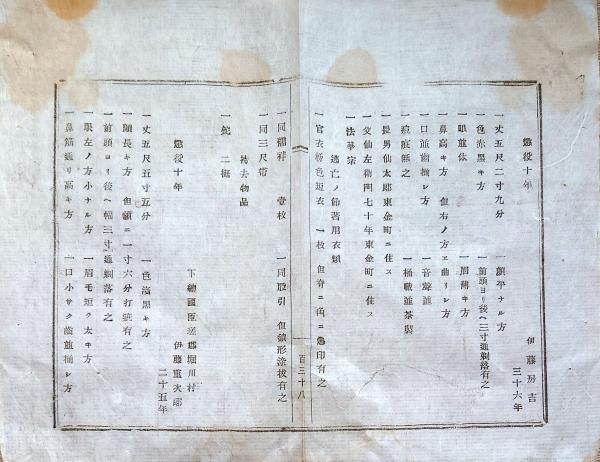 懲役十年
伊藤房吉
三十六年
一丈五尺二寸九分
一顔平ナル方
一色赤黒キ方
一前頭ヨリ後ヘ三寸通剃落有之
一眼並体
一眉薄キ方
一鼻高キ方 但右ノ方ヱ曲リシ方
一口並歯揃シ方
一音聲並
一痘痕無之
一桶職並茶製
一長男仙太郎東金町ニ住ス
一父仙左衛門七十年東金町ニ住ス
一法華宗
逃亡ノ節著用衣類
一官衣柿色短衣 一枚 但脊ニ角ニ印有之
百三十八
一同襦袢 壹枚
一同股引 但鎖形塗抜有之
一同三尺帯
持去物品
一鉈 二挺
懲役十年
下總國匝瑳郡堀川村
伊藤重次郎
二十五年
一丈五尺五寸五分
一色淺黒キ方
一顔長キ方 但額ニ一寸六分打疵有之
一前頭ヨリ後ヘ幅三寸通剃落有之
一眼左ノ方小ナル方
一眉毛短ク太キ方
一鼻筋通リ高キ方
一口小サク歯並揃シ方